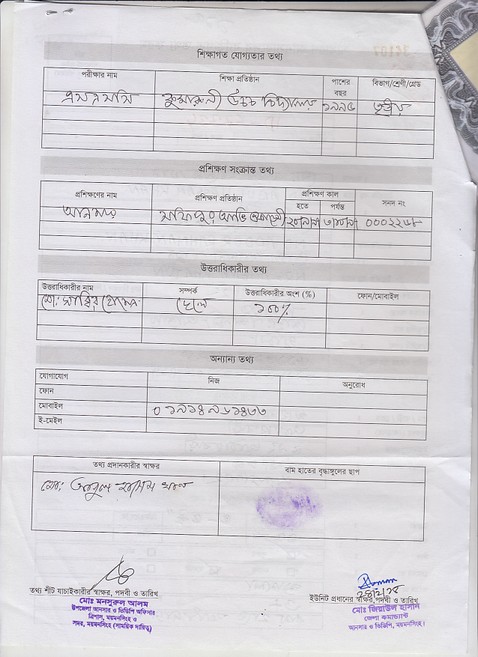 শিক্ষাগত যোগ্যতার তথ্য
পরীক্ষার নাম শিক্ষা প্রতিষ্ঠান পাশের বছর বিভাগ/শ্রেণী/গ্রেড
এসএসসি উচ্চ বিদ্যালয়
প্রশিক্ষণ সংক্রান্ত তথ্য
প্রশিক্ষণের নাম প্রশিক্ষণ প্রতিষ্ঠান প্রশিক্ষণ কাল সনদ নং
হতে পর্যন্ত
আনসার
উত্তরাধিকারীর তথ্য
উত্তরাধিকারীর নাম সম্পর্ক উত্তরাধিকারীর অংশ (%) ফোন/মোবাইল
মো: ছেলে ১০০%
অন্যান্য তথ্য
যোগাযোগ নিজ অনুরোধ
ফোন
মোবাইল
ই-মেইল
তথ্য প্রদানকারীর স্বাক্ষর বাম হাতের বৃদ্ধাঙ্গুলের ছাপ
মো: আবুল
তথ্য শীট যাচাইকারীর স্বাক্ষর, পদবী ও তারিখ
মোঃ মনসুরুল আলম
উপজেলা আনসার ও ভিডিপি অফিসার
ত্রিশাল, ময়মনসিংহ ও
সদর, ময়মনসিংহ (সাময়িক দায়িত্ব)
ইউনিট প্রধানের স্বাক্ষর, পদবী ও তারিখ
মোঃ জিয়াউল হাসান
জেলা কমান্ড্যান্ট
আনসার ও ভিডিপি, ময়মনসিংহ।